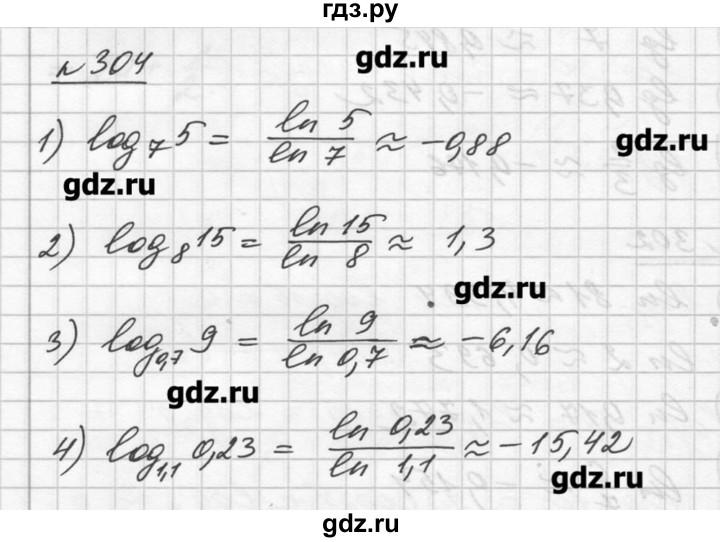 гдз.ру
№ 304
gdz.ru
1) log₇ 5 = ln 5 / ln 7 ≈ -0,88
gdz.ru
gdz.ru
2) log₈ 15 = ln 15 / ln 8 ≈ 1,3
gdz.ru
3) log₀,₇ 9 = ln 9 / ln 0,7 ≈ -6,16
gdz.ru
4) log₁,₁ 0,23 = ln 0,23 / ln 1,1 ≈ -15,42
gdz.ru
gdz.ru